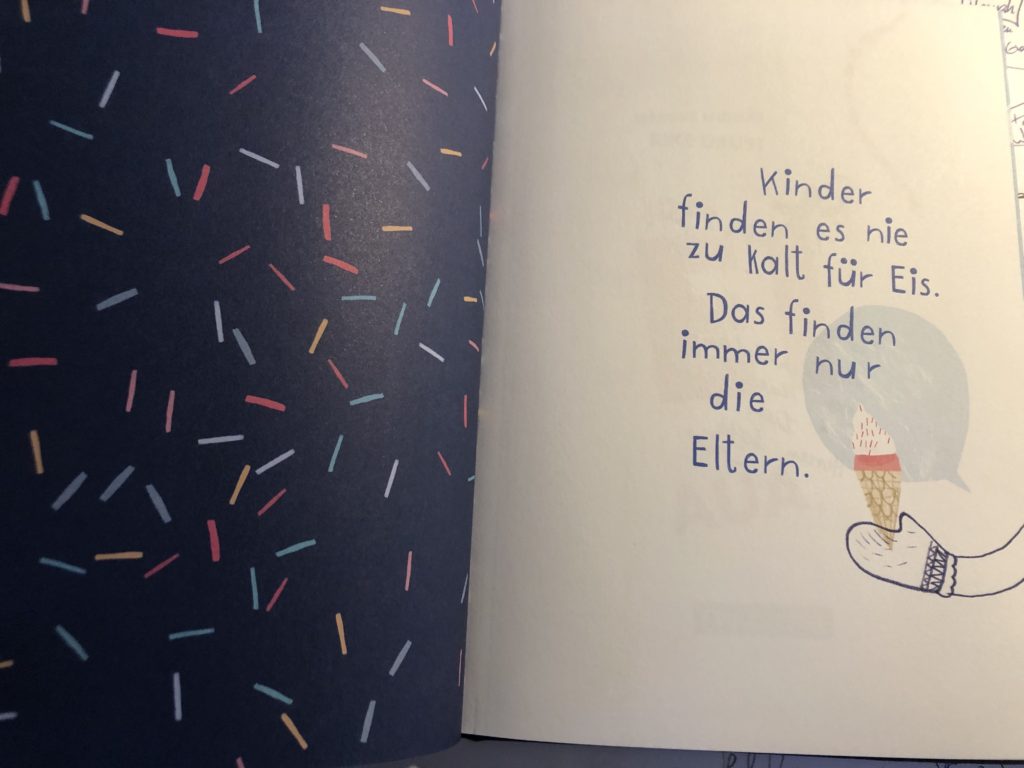 Kinder
finden es nie
zu kalt für Eis.
Das finden
immer nur
die
Eltern.